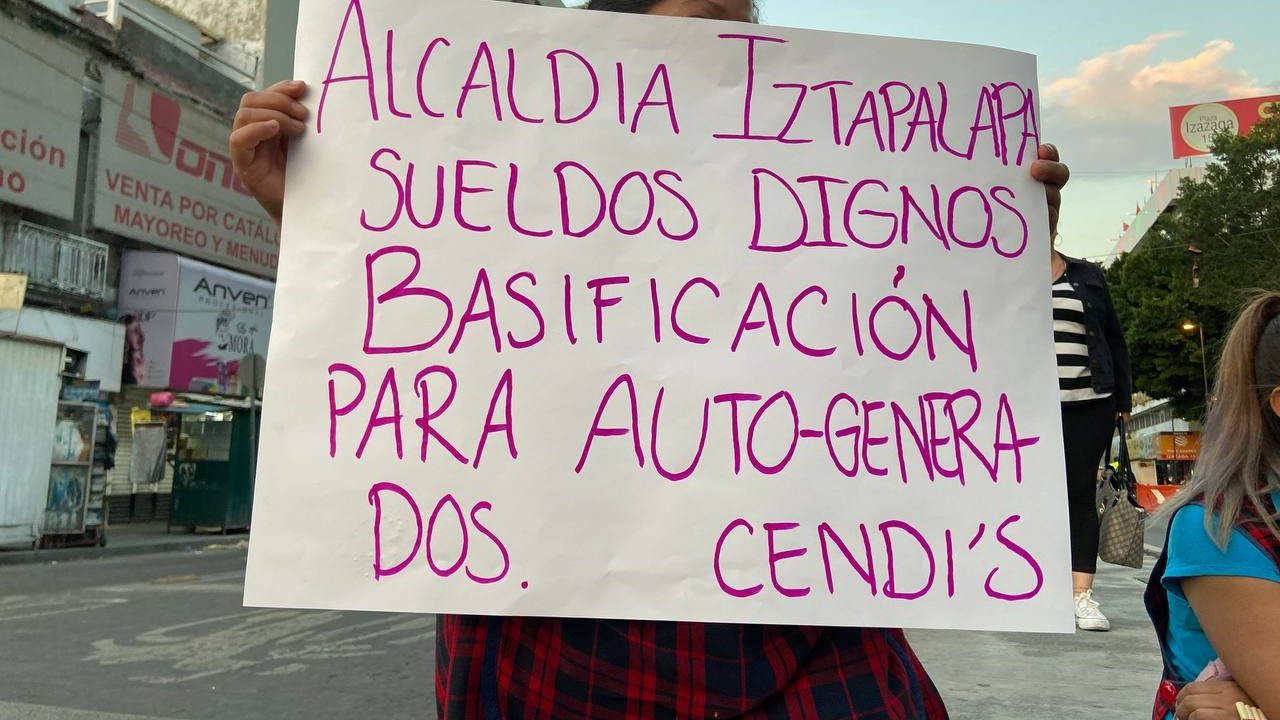 ALCALDIA IZTAPALAPA
SUELDOS DIGNOS
BASIFICACIÓN
PARA AUTO-GENERA
DOS. CENDI'S
ción
VENTA POR CATÁL
MAYOREO Y MENUD
Anven
Anven
PROFESSIONAL
MORA
Plaza
Izazaga